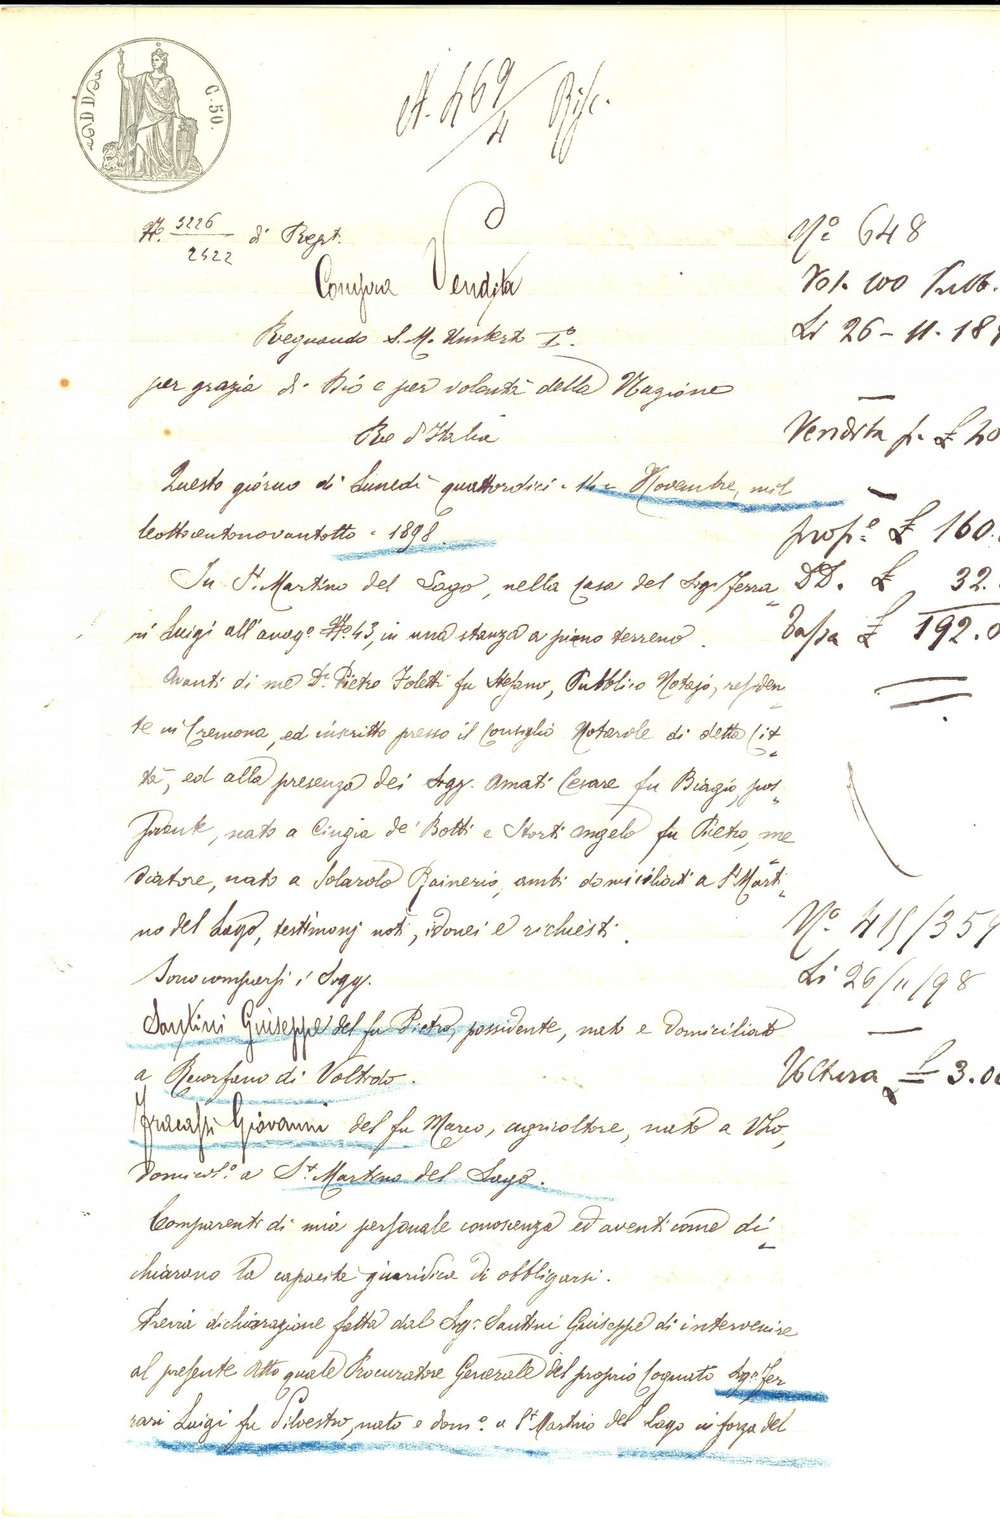 C. 50.
N. 469/4
N. 5226/2522 di Rept.
Compra Vendita
Regnando S. M. Umberto I°.
per grazia di Dio e per volontà della Nazione
Re d'Italia
Questo giorno di Lunedì quattordici - 14 - Novembre, mil
leottocentonovantotto - 1898.
In S. Martino del Lago, nella casa del Sigr Ferra
ri Luigi all'anag° N° 43, in una stanza a piano terreno.
Avanti di me Dr. Pietro Foletti fu Stefano, Pubblico Notajo, residen
te in Cremona, ed inscritto presso il Consiglio Notarole di detta Cit
tà, ed alla presenza dei Sigg. Amati Cesare fu Biagio, pos
sidente, nato a Cingia de' Botti e Storti Angelo fu Pietro, me
diatore, nato a Solarolo Rainerio, ambi domiciliati a S. Marti
no del Lago, testimonj noti, idonei e richiesti.
Sono comparsi i Sigg.
Santini Giuseppe del fu Pietro, possidente, nato e domiciliato
a Recorfano di Voltido.
Fracassi Giovanni del fu Marco, agricoltore, nato a Vho,
domicil.° a St. Martino del Lago.
Comparenti di mia personale conoscenza ed aventi come di
chiarano la capacità giuridica di obbligarsi.
Previa dichiarazione fatta dal Sigr. Santini Giuseppe di intervenire
al presente Atto quale Procuratore Generale del proprio Cognato Sigr Fer
rari Luigi fu Silvestro, nato e dom.° a St Martino del Lago in forza del
N° 648
Vol. 100 Pubb.
Li 26 - 11 - 189
Vendita p. £ 40
prop.° £ 160.
DD. £ 32.
Tassa £ 192.0
N° 415/359
Li 26/11/98
Voltura £ 3.00